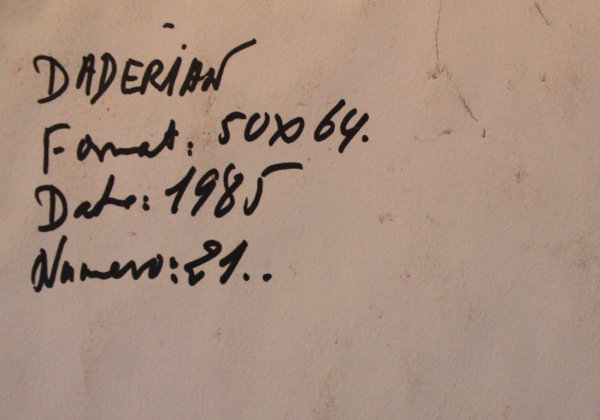 DADERIAN
Format: 50x64.
Date: 1985
Numero: 21..